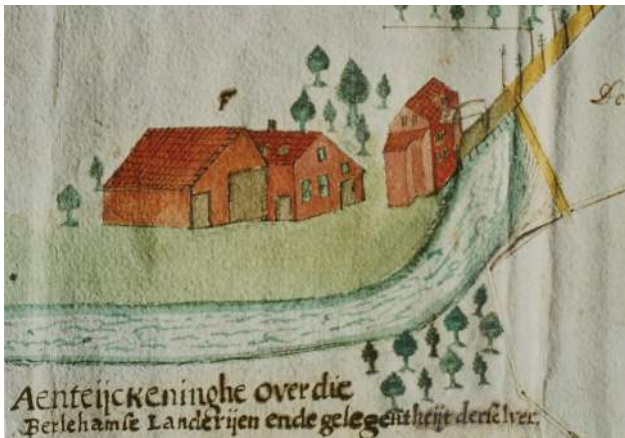 F
De
Aenteijckeninghe over die
Berlehamse Landerijen ende gelegentheijt derselver.